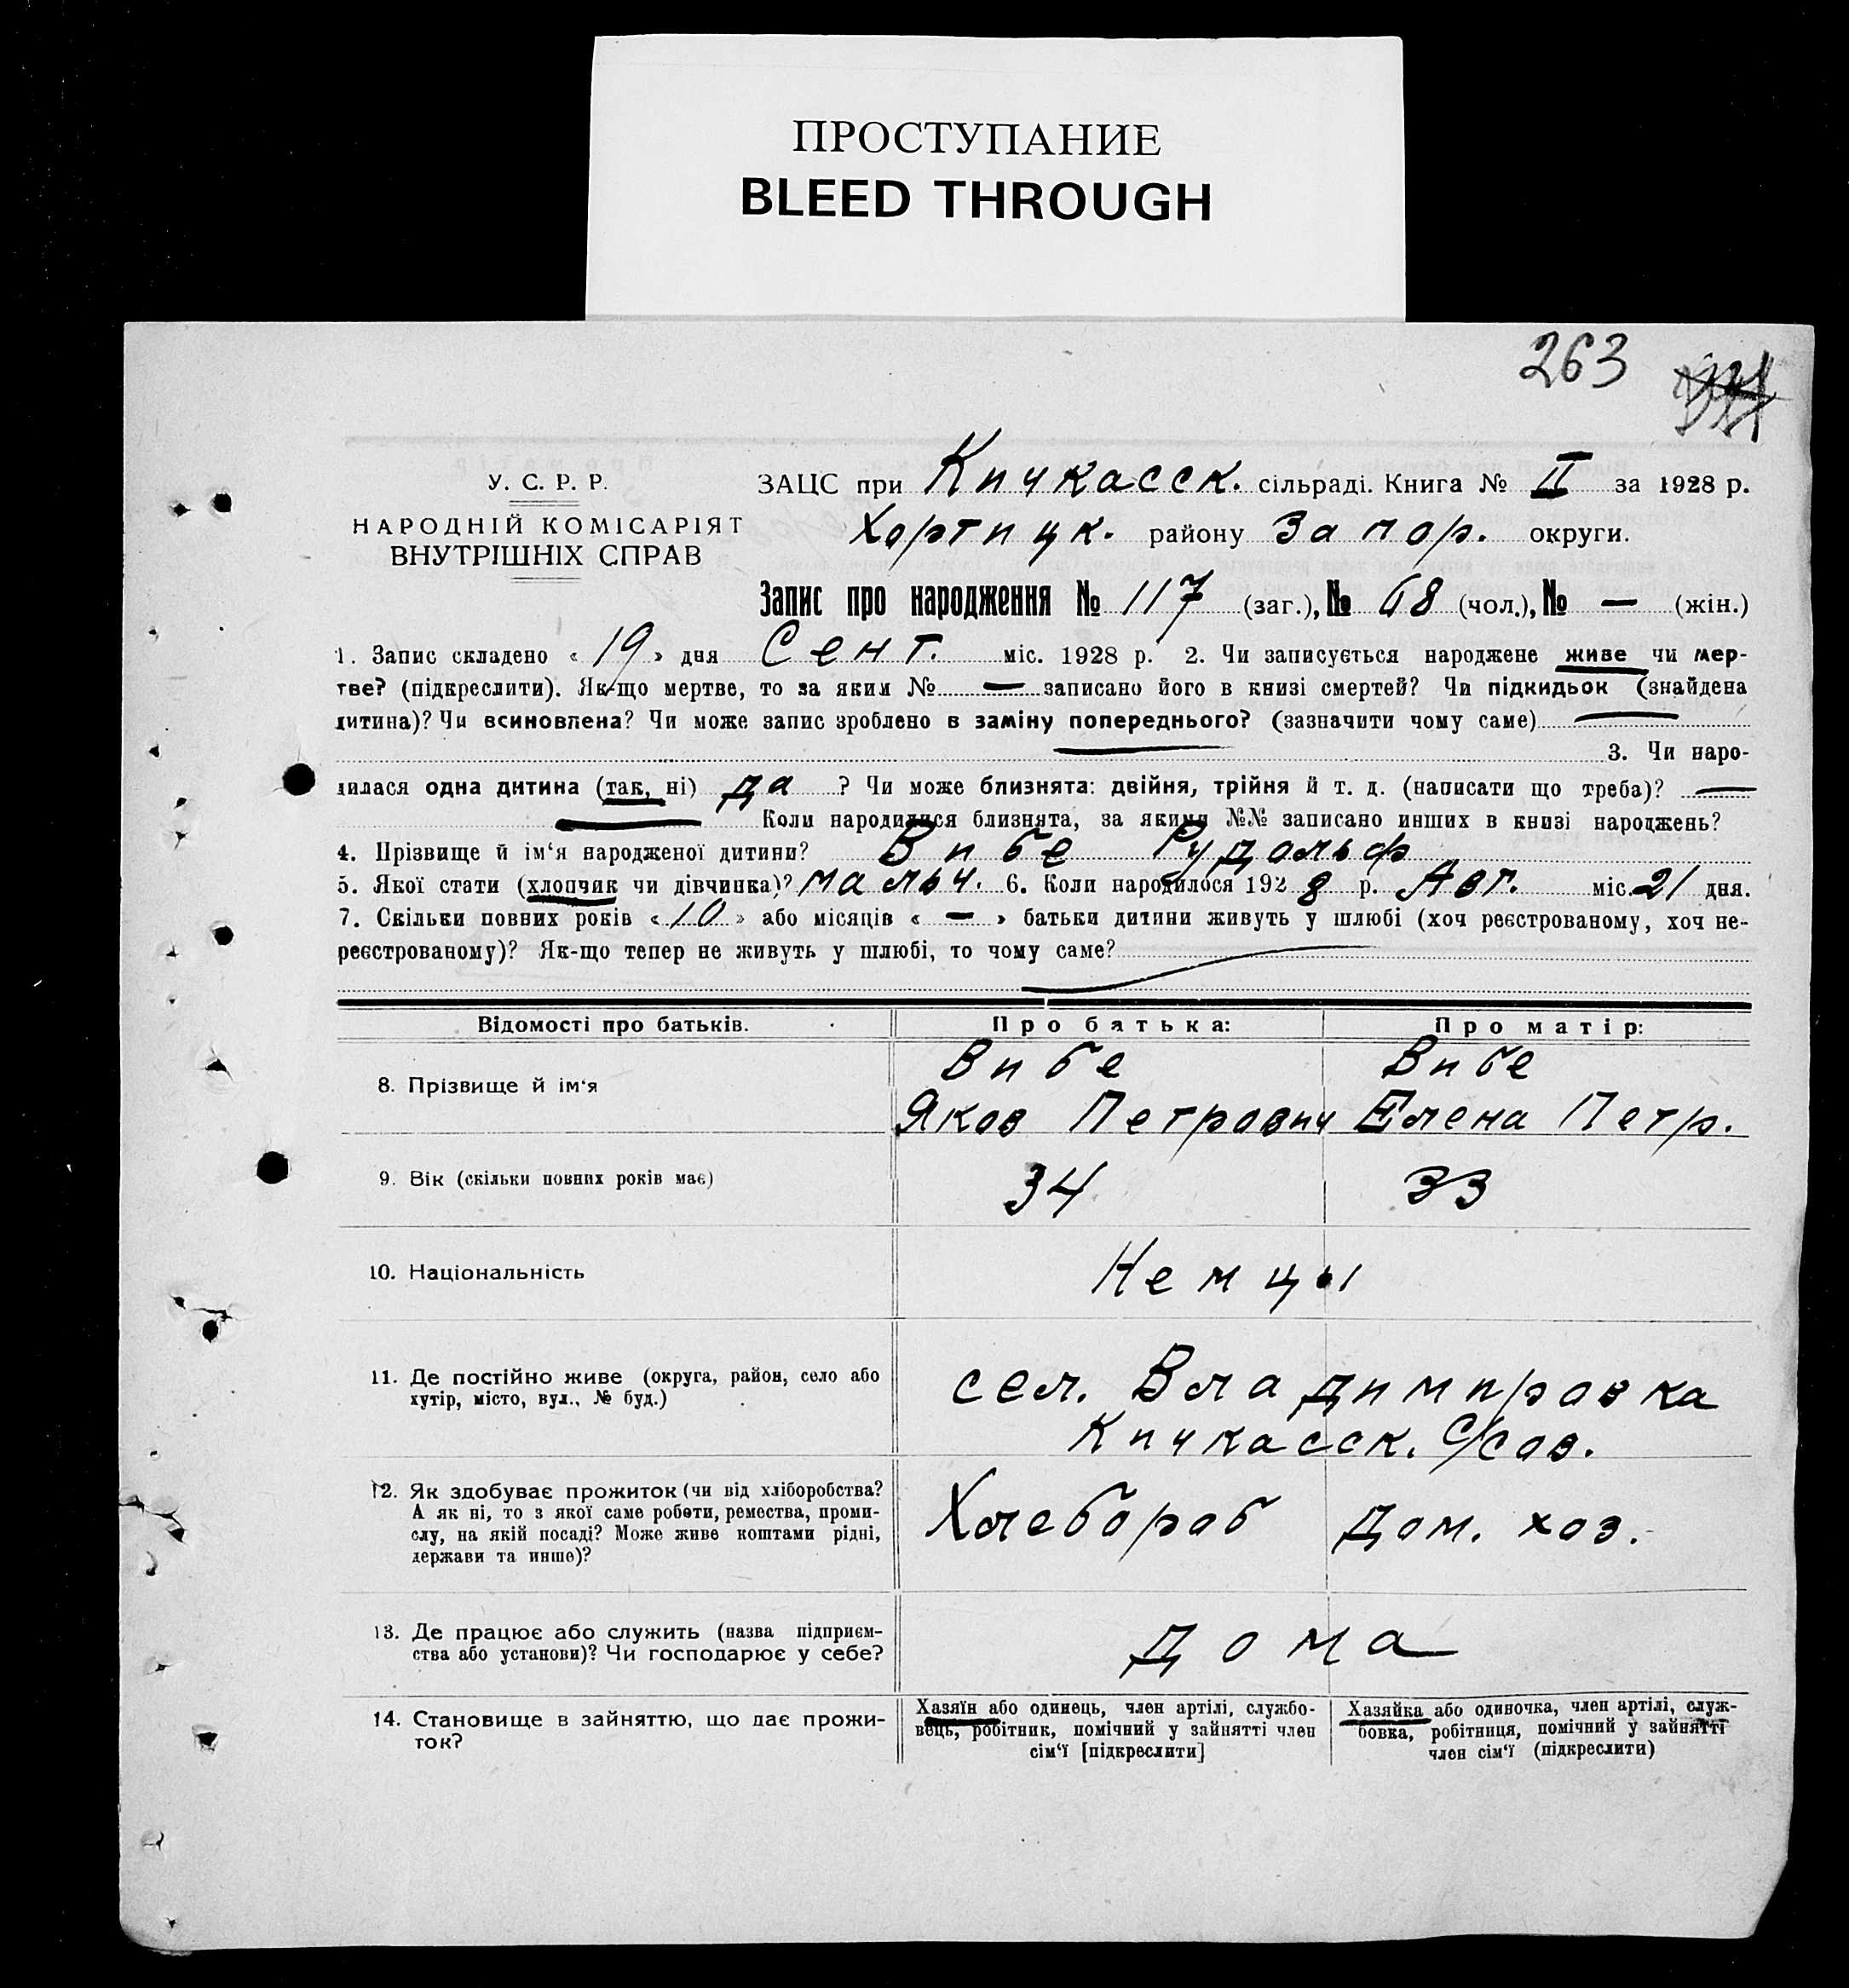 ПРОСТУПАНИЕ
BLEED THROUGH
263
У. С. Р. Р.
НАРОДНІЙ КОМІСАРІЯТ
ВНУТРІШНІХ СПРАВ
ЗАЦС при Кичкасск. сільраді. Книга № II за 1928 р.
Хортицк. району Запор. округи.
Запис про народження № 117 (заг.), № 68 (чол.), № — (жін.)
1. Запис складено « 19 » дня Сент. міс. 1928 р. 2. Чи записується народжене живе чи мер-
тве? (підкреслити). Як-що мертве, то за яким № — записано його в книзі смертей? Чи підкидьок (знайдена
дитина)? Чи всиновлена? Чи може запис зроблено в заміну попереднього? (зазначити чому саме) —
— 3. Чи наро-
дилася одна дитина (так, ні) да ? Чи може близнята: двійня, трійня й т. д. (написати що треба)? —
— Коли народилися близнята, за якими №№ записано инших в книзі народжень?
4. Прізвище й ім‘я народженої дитини? Вибе Рудольф
5. Якої стати (хлопчик чи дівчинка)? мальч. 6. Коли народилося 192 8 р. Авг. міс. 21 дня.
7. Скільки повних років « 10 » або місяців « — » батьки дитини живуть у шлюбі (хоч реєстрованому, хоч не-
реєстрованому)? Як-що тепер не живуть у шлюбі, то чому саме?
Відомості про батьків. Про батька: Про матір:
8. Прізвище й ім‘я Вибе Вибе
Яков Петрович Елена Петр.
9. Вік (скільки повних років має) 34 33
10. Національність Немцы
11. Де постійно живе (округа, район, село або
хутір, місто, вул., № буд.)
сел. Владимировка
Кичкасск. С/сов.
12. Як здобуває прожиток (чи від хліборобства?
А як ні, то з якої саме роботи, ремества, проми-
слу, на якій посаді? Може живе коштами рідні,
держави та инше)?
Хлебороб Дом. хоз.
13. Де працює або служить (назва підприєм-
ства або установи)? Чи господарює у себе?
Дома
14. Становище в зайняттю, що дає прожи-
ток?
Хазяїн або одинець, член артілі, службо-
вець, робітник, помічний у зайнятті член
сім‘ї [підкреслити]
Хазяйка або одиночка, член артілі, служ-
бовка, робітниця, помічний у зайнятті
член сім‘ї (підкреслити)